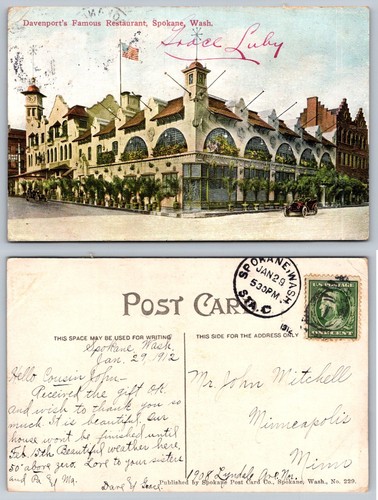 Davenport's Famous Restaurant, Spokane, Wash.
Grace Luby
SPOKANE, WASH.
JAN 29
5 30 PM
STA. C
1912
U.S. POSTAGE
ONE CENT
POST CARD
THIS SPACE MAY BE USED FOR WRITING
THIS SIDE FOR THE ADDRESS ONLY
Spokane, Wash.
Jan. 29, 1912
Hello Cousin John—
Received the gift O.K.
and wish to thank you so
much. It is beautiful. Our
house won't be finished until
Feb. 15th. Beautiful weather here.
50° above zero. Love to your sisters
and Pa & Ma.
Dave & Grace.
Mr. John Mitchell
Minneapolis
Minn
1928 Lyndale Ave. No.
Published by Spokane Post Card Co., Spokane, Wash., No. 229.